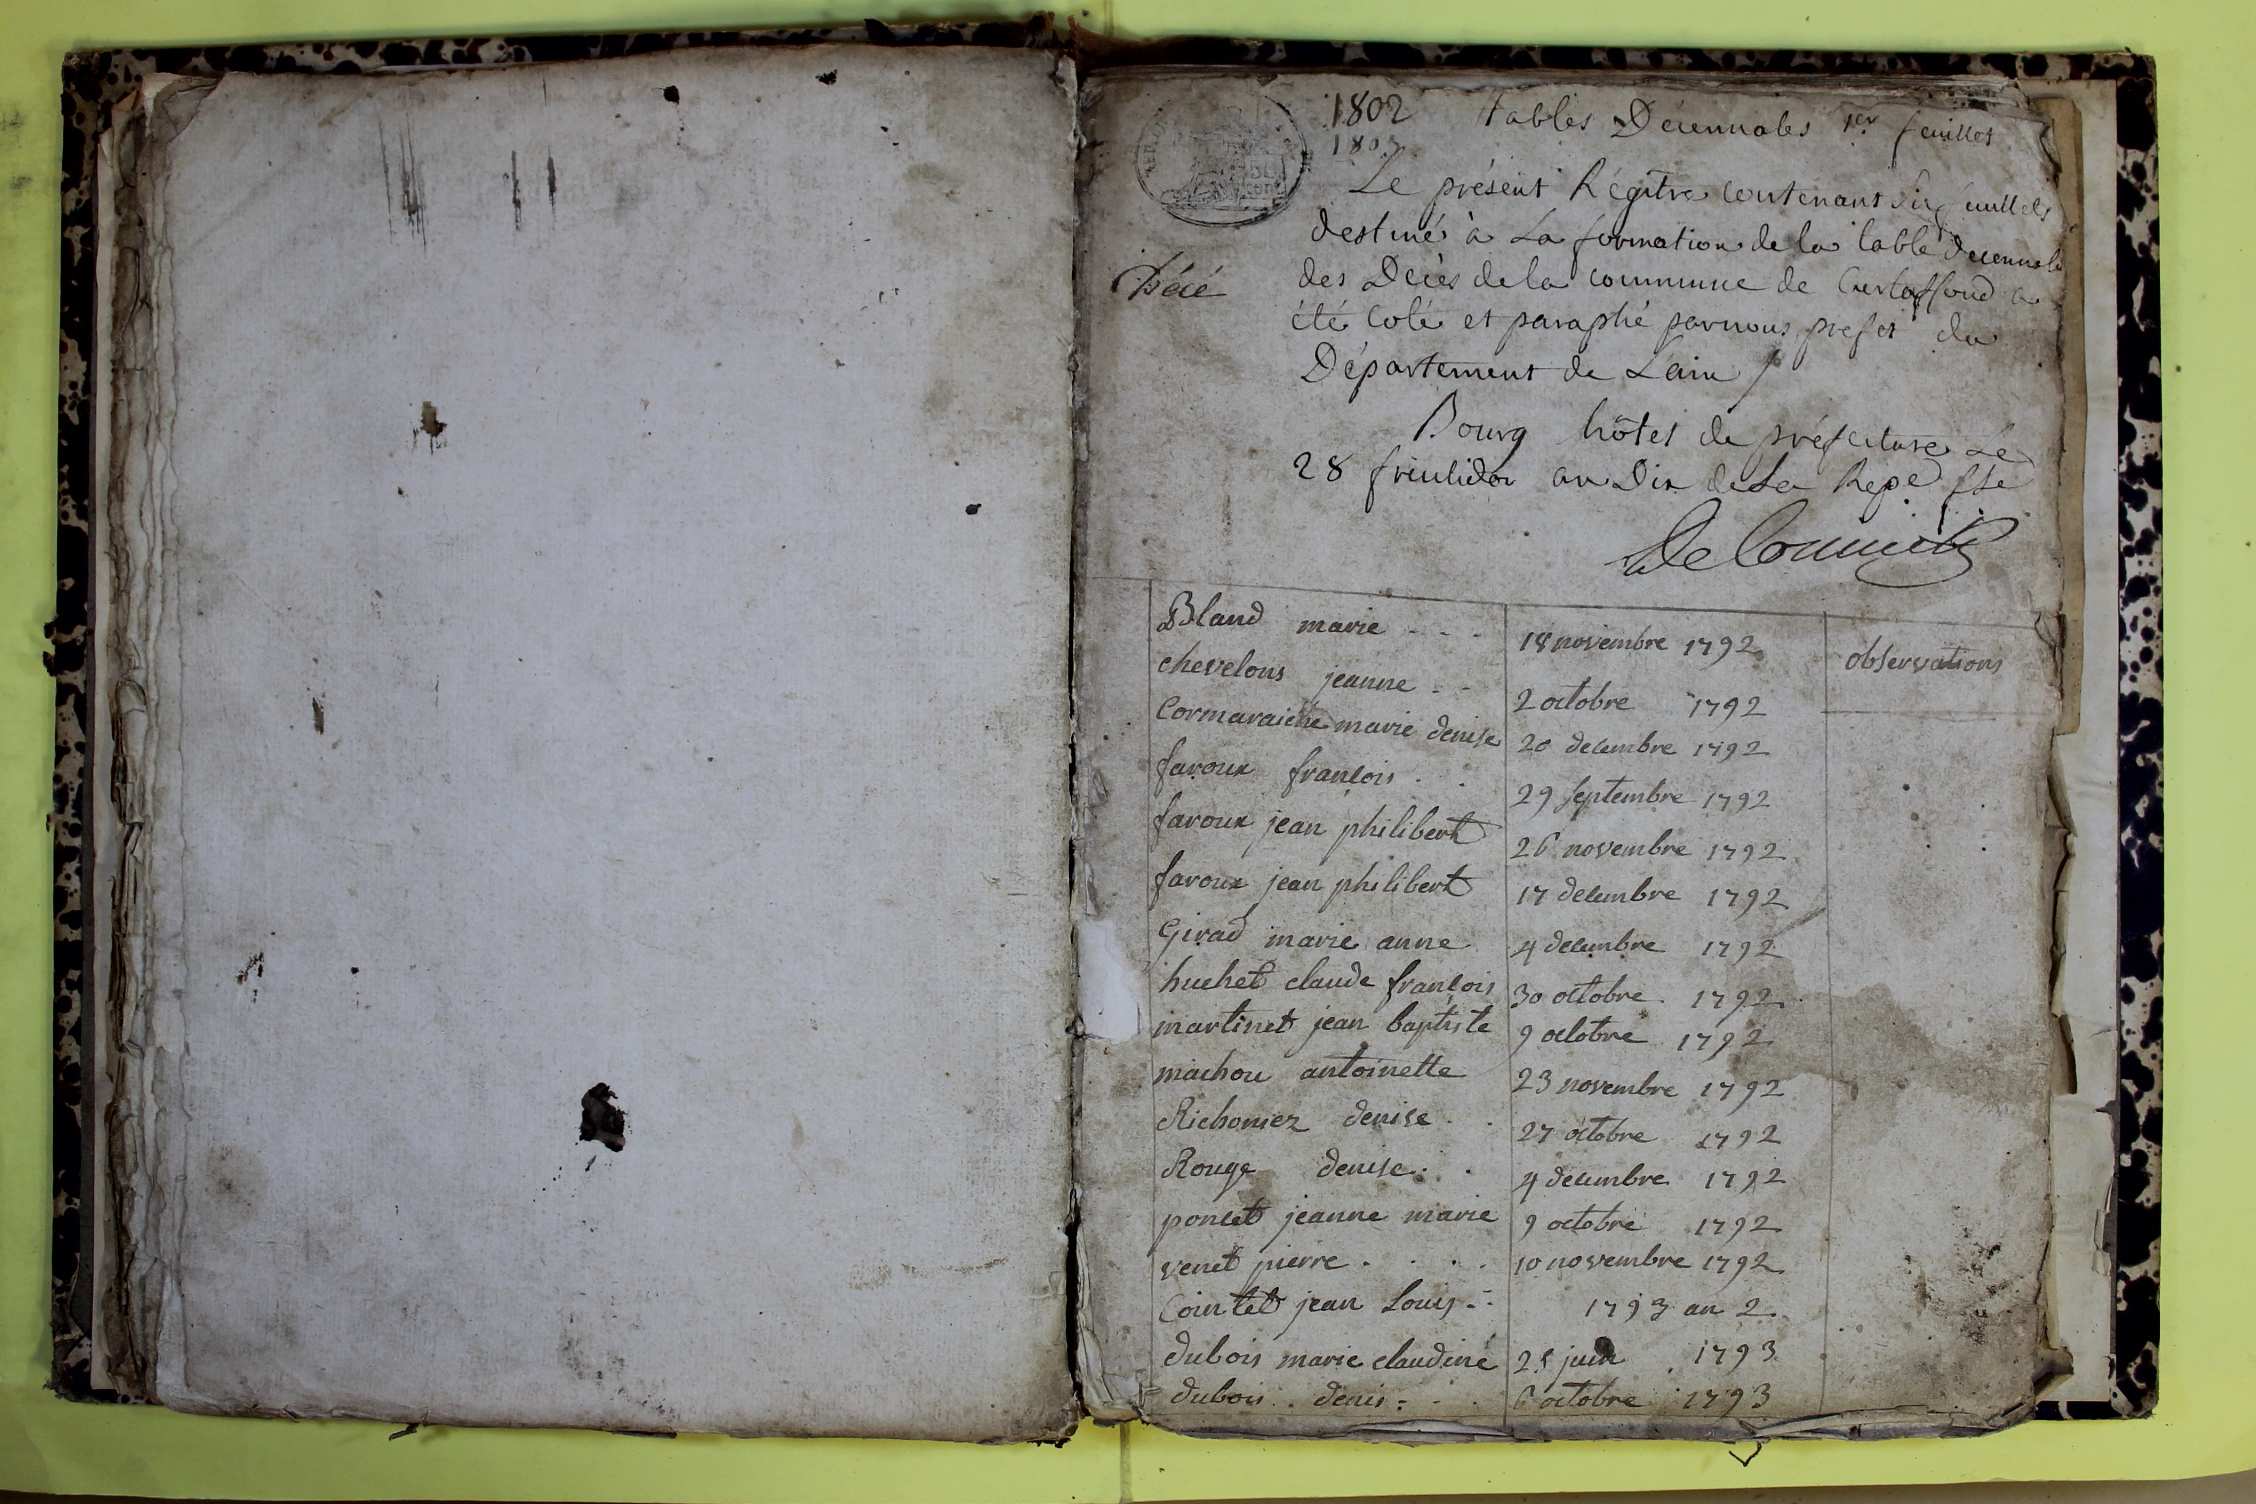 1802 tables Décennales 1er feuillet
Le présent Régitre contenant Six feuillets
destiné à La formation de la table decennale
des Décès de la commune de Curtaffond a
Décé
été Coté et paraphé par nous prefet du
Département de L'ain
Bourg hôtel de préfecture Le
28 fructidor an Dix de La Repe fse
Bland marie - - - 18 novembre 1792 observations
chevelons jeanne - - 2 octobre 1792
Cormaraiche marie denise 20 decembre 1792
faroux françois . . 29 septembre 1792
faroux jean philibert 26 novembre 1792
faroux jean philibert 17 decembre 1792
Girad marie anne 4 decembre 1792
huchet claude françois 30 octobre 1792
martinet jean baptiste 9 octobre 1792
machou antoinette 23 novembre 1792
Richomez denise . . 27 octobre 1792
Rouge denise . . 4 decembre 1792
poncet jeanne marie 9 octobre 1792
venet pierre . . . . 10 novembre 1792
Cointet jean Louis - - 1793 an 2
dubois marie claudine juin 1793
dubois denis - . . 6 octobre 1793